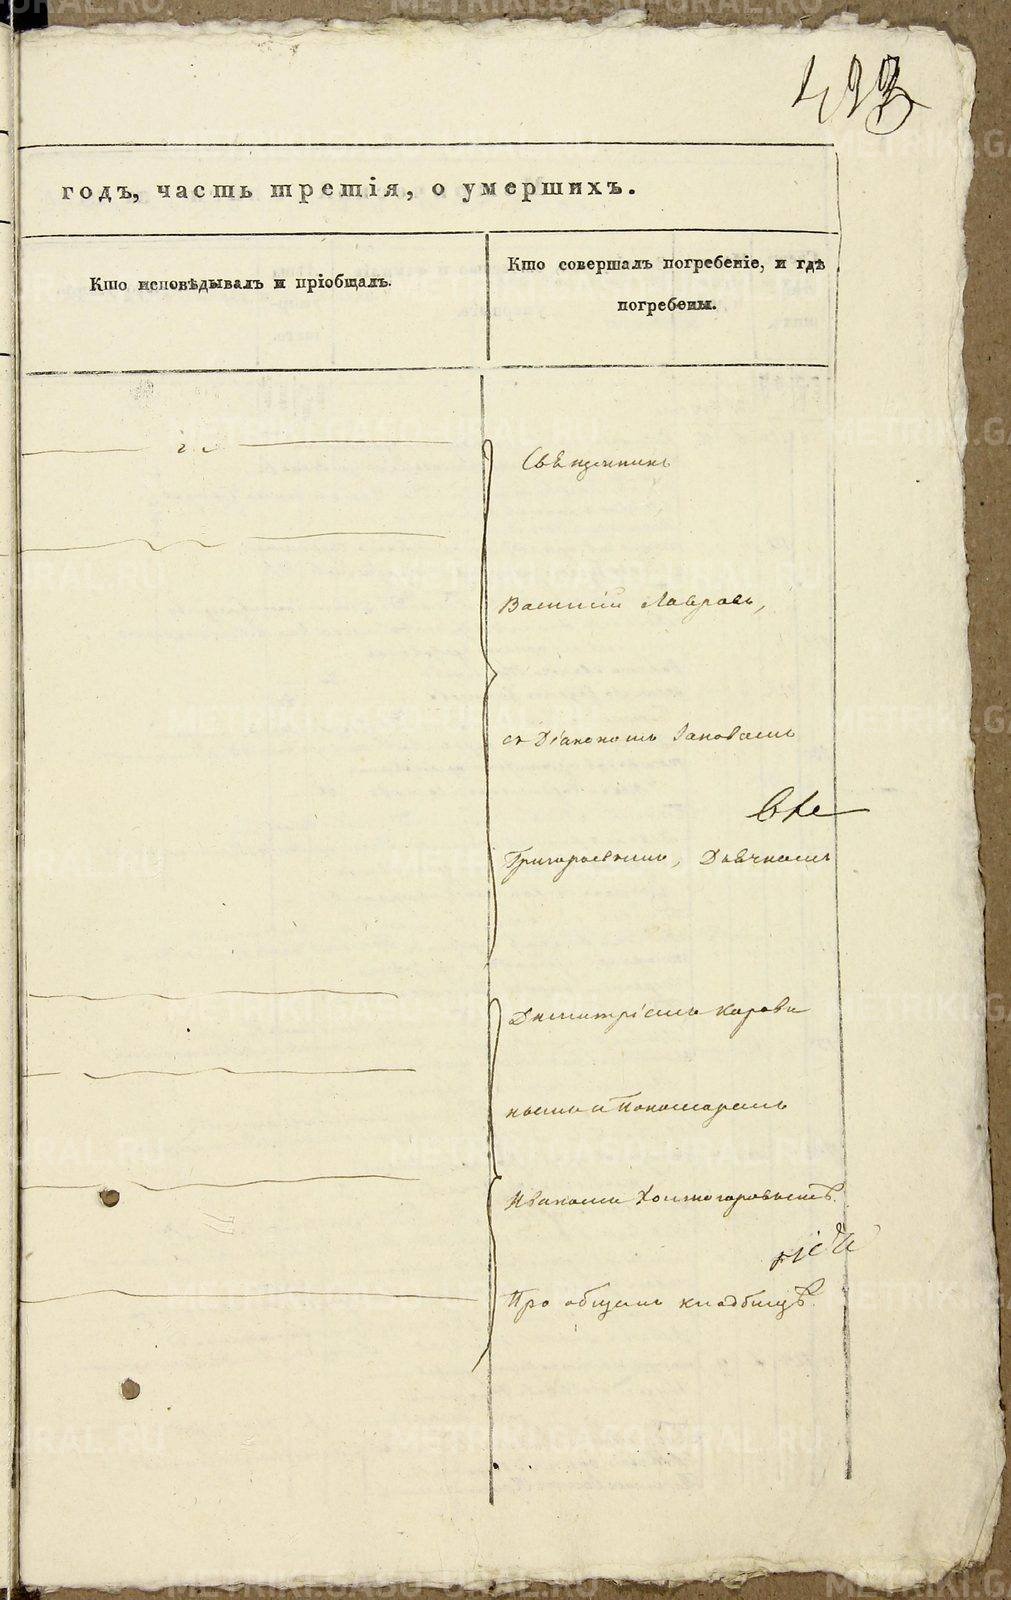 годъ, часть третія, о умершихъ.
Кто исповѣдывалъ и пріобщалъ.
Кто совершалъ погребеніе, и гдѣ
погребены.
Священникъ
Василій Лавровъ,
съ Діакономъ Іаковомъ
Григорьевымъ, Дьячкомъ
Димитріемъ Корови
нымъ и Пономаремъ
Иваномъ Холмогоровымъ.
При общемъ кладбищѣ.
METRIKI.GASO-URAL.RU